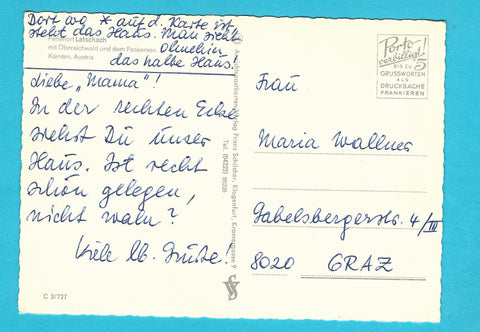 Dort wo * auf d. Karte ist
steht das Haus. Man sieht
ohnehin
das halbe Haus!
Ferienort Latschach
mit Oberaichwald und dem Faakersee.
Kärnten, Austria
Liebe „Mama“!
In der rechten Ecke
siehst Du unser
Haus. Ist recht
schön gelegen,
nicht wahr?
Viele lb. Grüße!
C 3/727
Franz Schilcher, Klagenfurt,
Tel. (04222)
Porto
verbilligt!
BIS ZU 5
GRUSSWORTEN
ALS
DRUCKSACHE
FRANKIEREN
Frau
Maria Wallner
Gabelsbergerstr. 4/III
8020 GRAZ